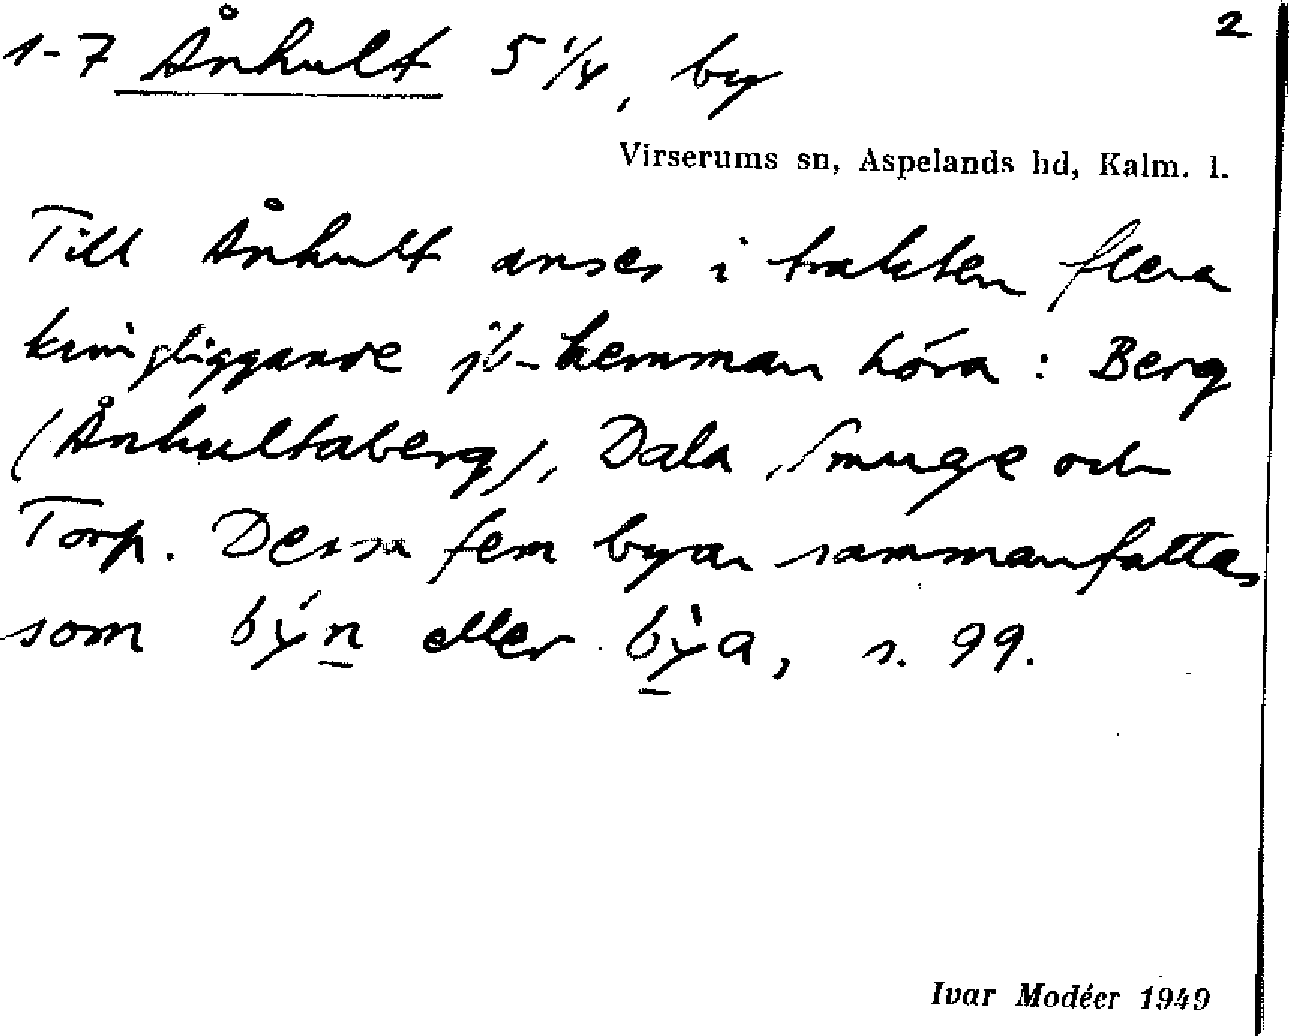 2
1-7 Ånhult 5 1/4, by
Virserums sn, Aspelands hd, Kalm. l.
Till Ånhult anses i trakten flera
kringliggande jb-hemman höra: Berg
(Ånhultaberg), Dala, Smuge och
Torp. Dessa fem byar sammanfattas
som býn eller bỳa, s. 99.
Ivar Modéer 1949